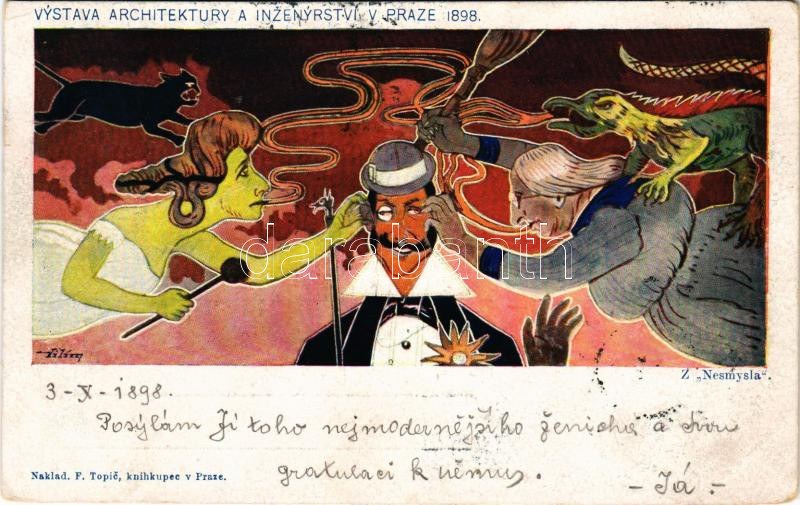 VÝSTAVA ARCHITEKTURY A INŽENÝRSTVÍ V PRAZE 1898.
darabanth
Z „Nesmysla“.
3-X-1898.
Posýlám Jí toho nejmodernějšího ženicha a svou
gratulaci k němu.
- Já -
Naklad. F. Topič, knihkupec v Praze.